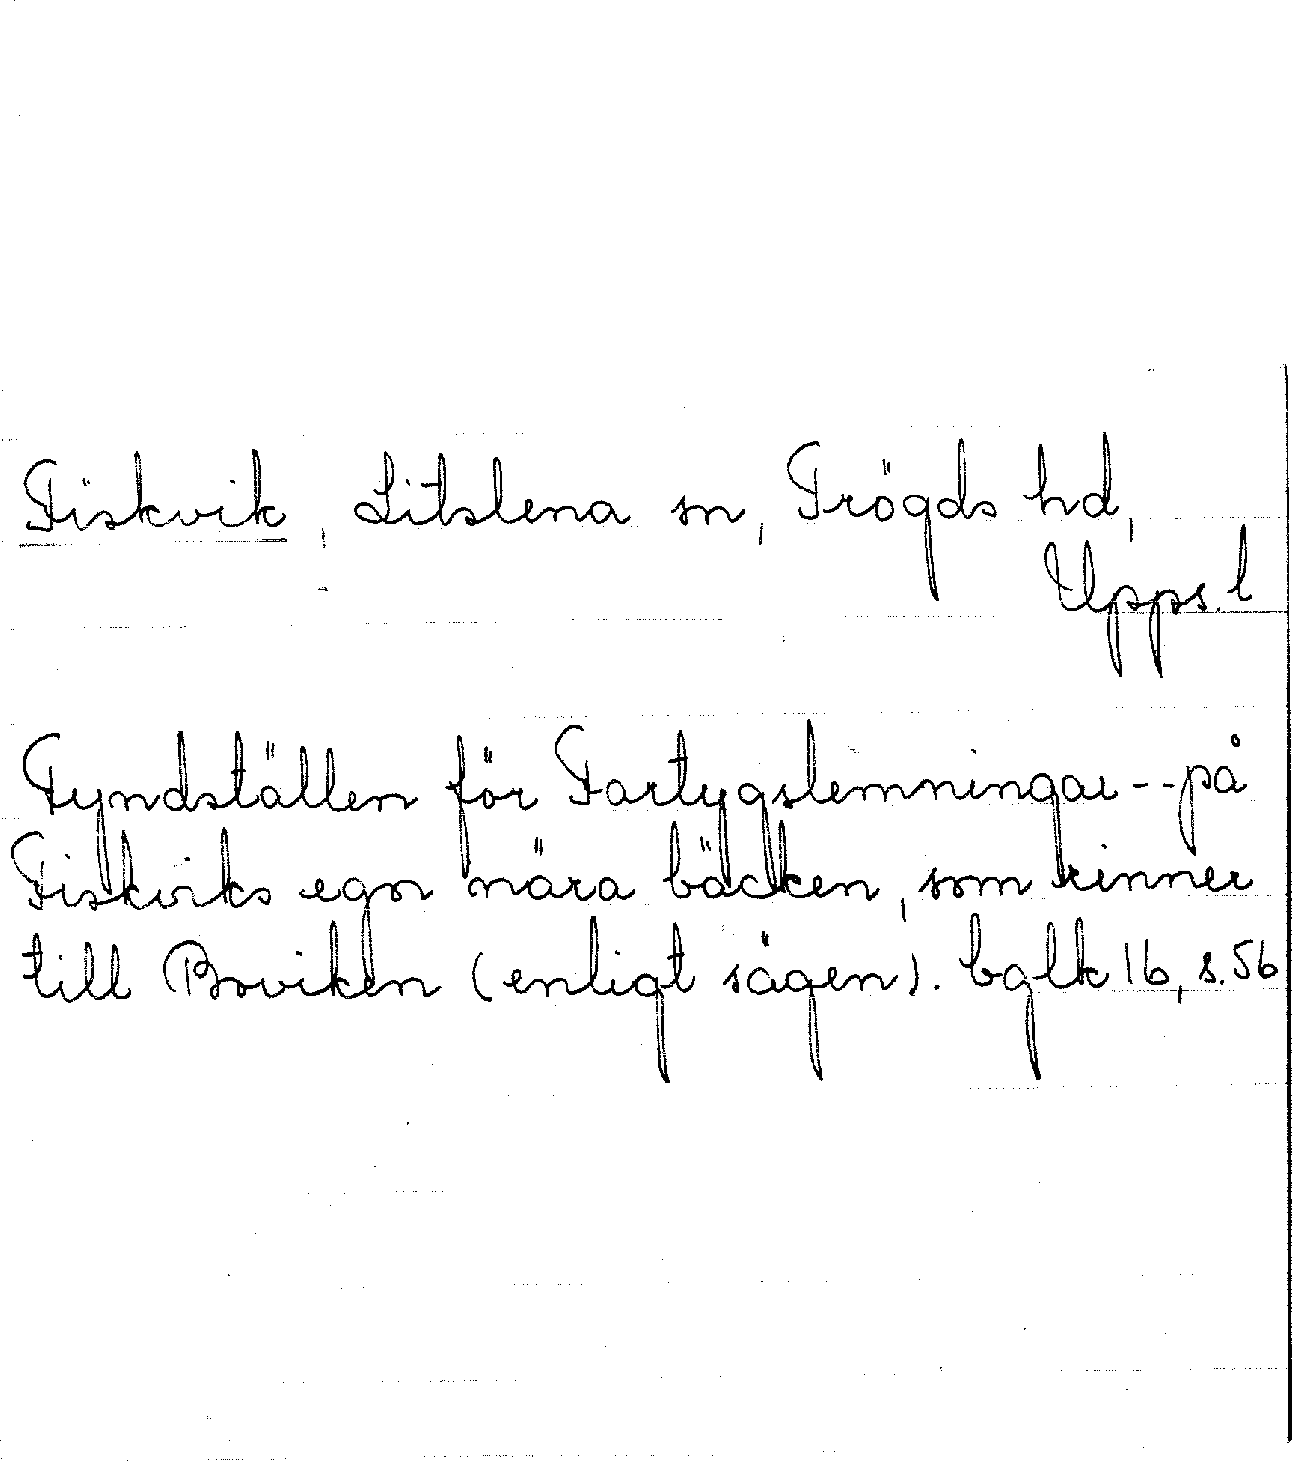 Fiskvik, Litslena sn, Trögds hd,
Upps. l
Fyndställen för Fartygslemningar -- på
Fiskviks egor nära bäcken, som rinner
till Broviken (enligt sägen). bglk 16, s. 56